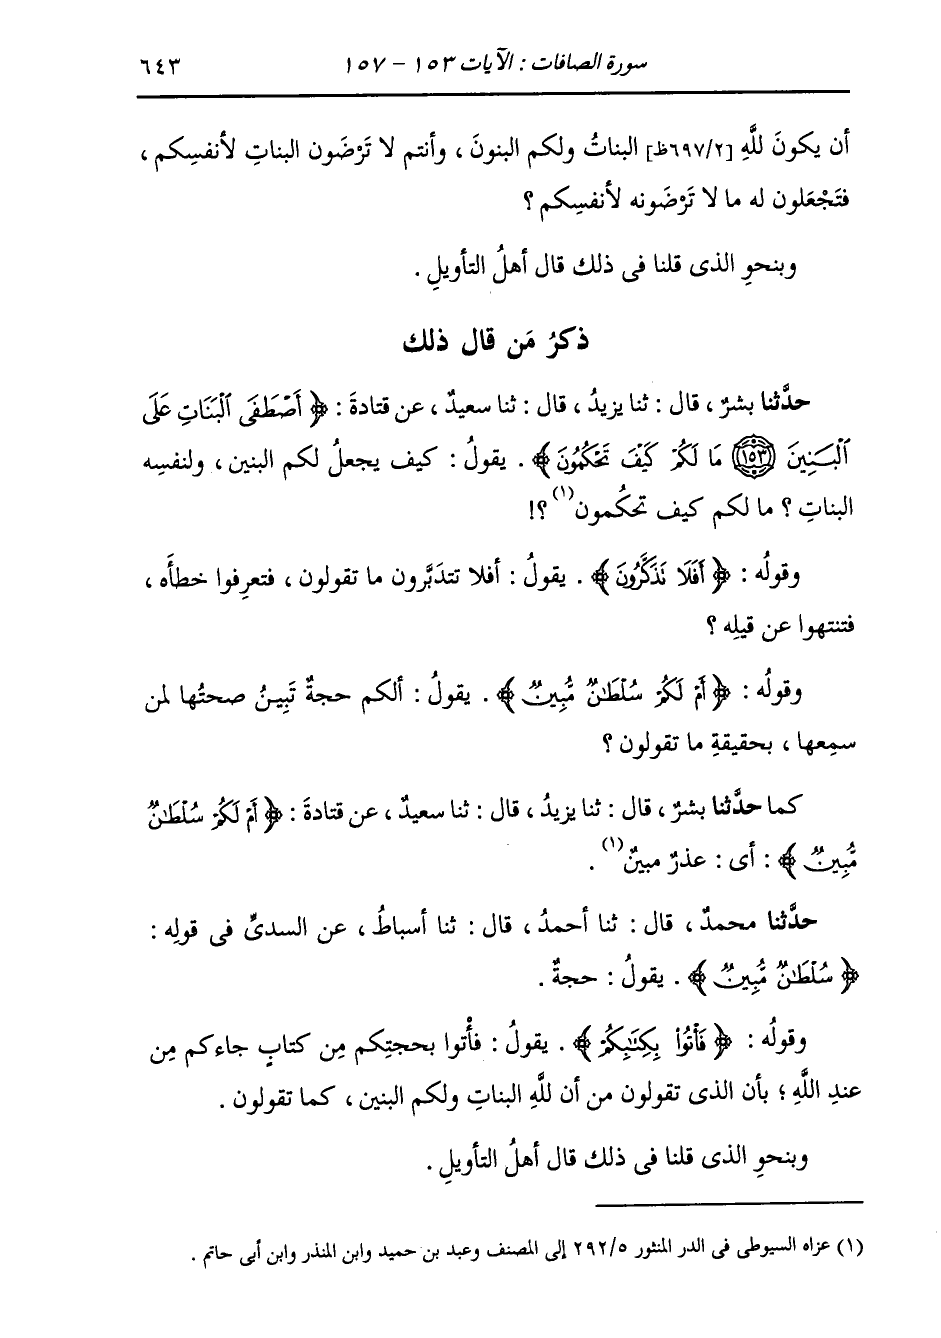 سورة الصافات : الآيات ١٥٣ - ١٥٧ ٦٤٣
أن يكونَ للَّهِ [٦٩٧/٢ظ] البناتُ ولكم البنونَ ، وأنتم لا تَرْضَون البناتِ لأنفسِكم ،
فتَجْعَلون له ما لا تَرْضَونه لأنفسِكم ؟
وبنحوِ الذى قلنا فى ذلك قال أهلُ التأويلِ .
ذكرُ مَن قال ذلك
حدَّثنا بشرٌ ، قال : ثنا يزيدُ ، قال : ثنا سعيدٌ ، عن قتادةَ : ﴿ أَصْطَفَى ٱلْبَنَاتِ عَلَى
ٱلْبَنِينَ (١٥٣) مَا لَكُمْ كَيْفَ تَحْكُمُونَ ﴾ . يقولُ : كيف يجعلُ لكم البنين ، ولنفسِه
البناتِ ؟ ما لكم كيف تحكُمون(١) ؟!
وقولُه : ﴿ أَفَلَا نَذَكَّرُونَ ﴾ . يقولُ : أفلا تتدَبَّرون ما تقولون ، فتعرِفوا خطأَه ،
فتنتهوا عن قيلِه ؟
وقولُه : ﴿ أَمْ لَكُمْ سُلْطَٰنٌ مُّبِينٌ ﴾ . يقولُ : ألكم حجةٌ تَبِينُ صحتُها لمن
سمِعها ، بحقيقةِ ما تقولون ؟
كما حدَّثنا بشرٌ ، قال : ثنا يزيدُ ، قال : ثنا سعيدٌ ، عن قتادةَ : ﴿ أَمْ لَكُمْ سُلْطَٰنٌ
مُّبِينٌ ﴾ : أى : عذرٌ مبينٌ(١) .
حدَّثنا محمدٌ ، قال : ثنا أحمدُ ، قال : ثنا أسباطُ ، عن السدىِّ فى قولِه :
﴿ سُلْطَٰنٌ مُّبِينٌ ﴾ . يقولُ : حجةٌ .
وقولُه : ﴿ فَأْتُوا۟ بِكِتَٰبِكُمْ ﴾ . يقولُ : فأْتوا بحجتِكم مِن كتابٍ جاءكم مِن
عندِ اللَّهِ ؛ بأن الذى تقولون من أن للَّهِ البناتِ ولكم البنين ، كما تقولون .
وبنحوِ الذى قلنا فى ذلك قال أهلُ التأويلِ .
(١) عزاه السيوطى فى الدر المنثور ٢٩٢/٥ إلى المصنف وعبد بن حميد وابن المنذر وابن أبى حاتم .